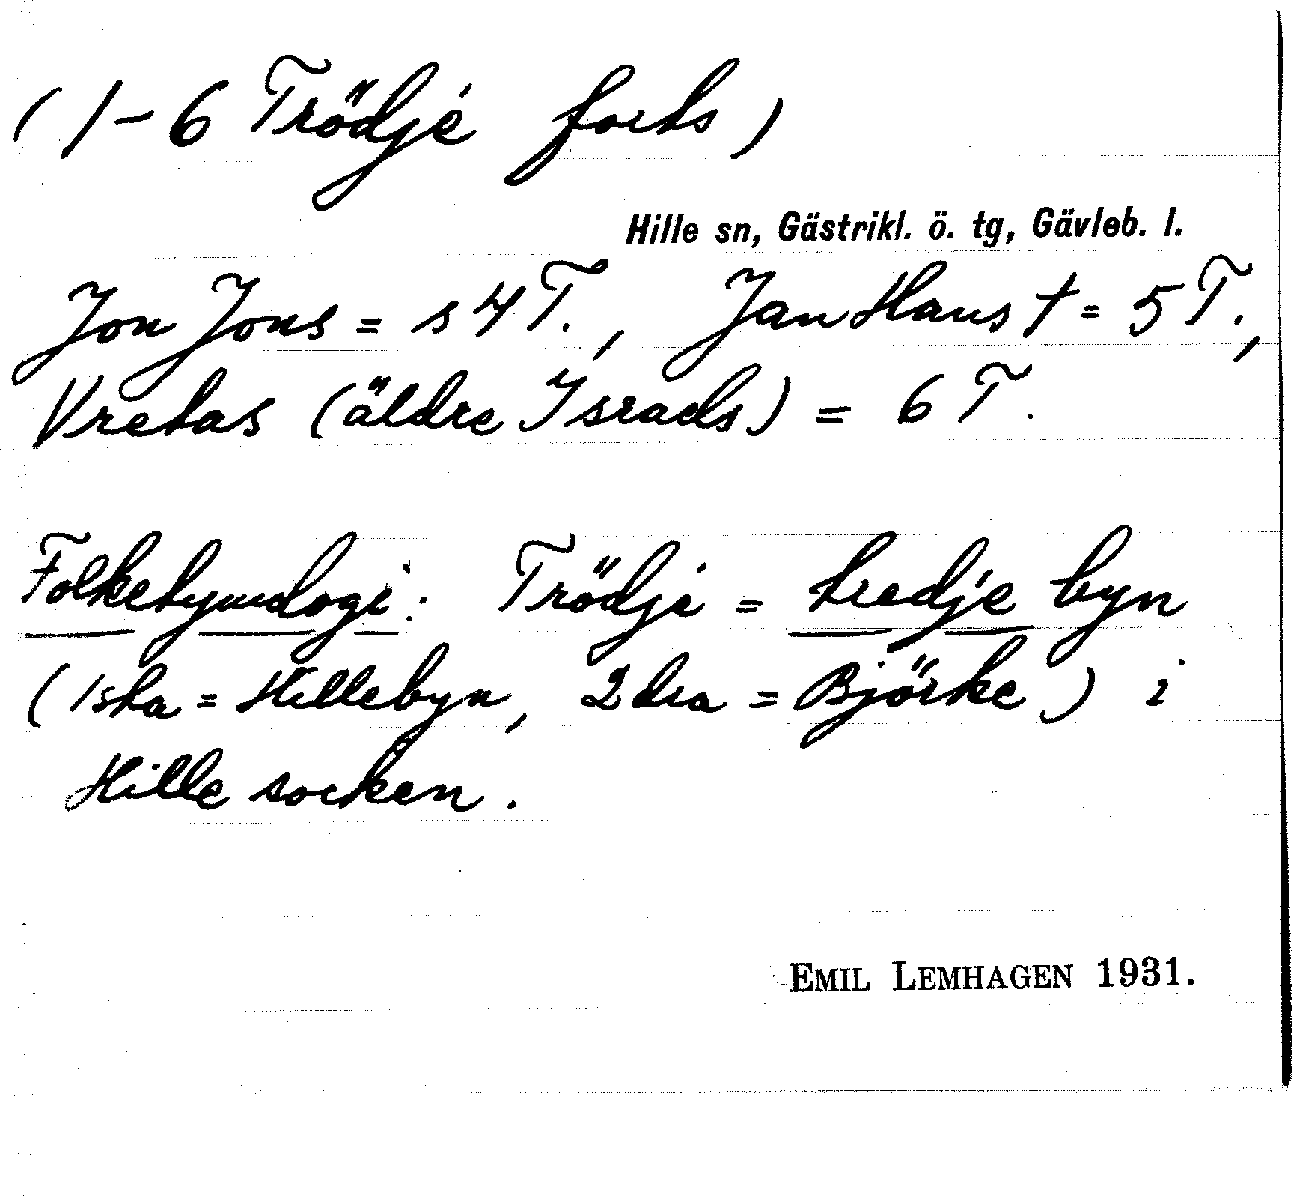 (1-6 Trödje forts)
Hille sn, Gästrikl. ö. tg, Gävleb. l.
Jon Jons = s 4 T., Jan Hans † = 5 T.,
Vretas (äldre Israels) = 6 T.
Folketymologi: Trödje = tredje byn
(1sta = Hillebyn, 2dra = Björke) i
Hille socken.
EMIL LEMHAGEN 1931.